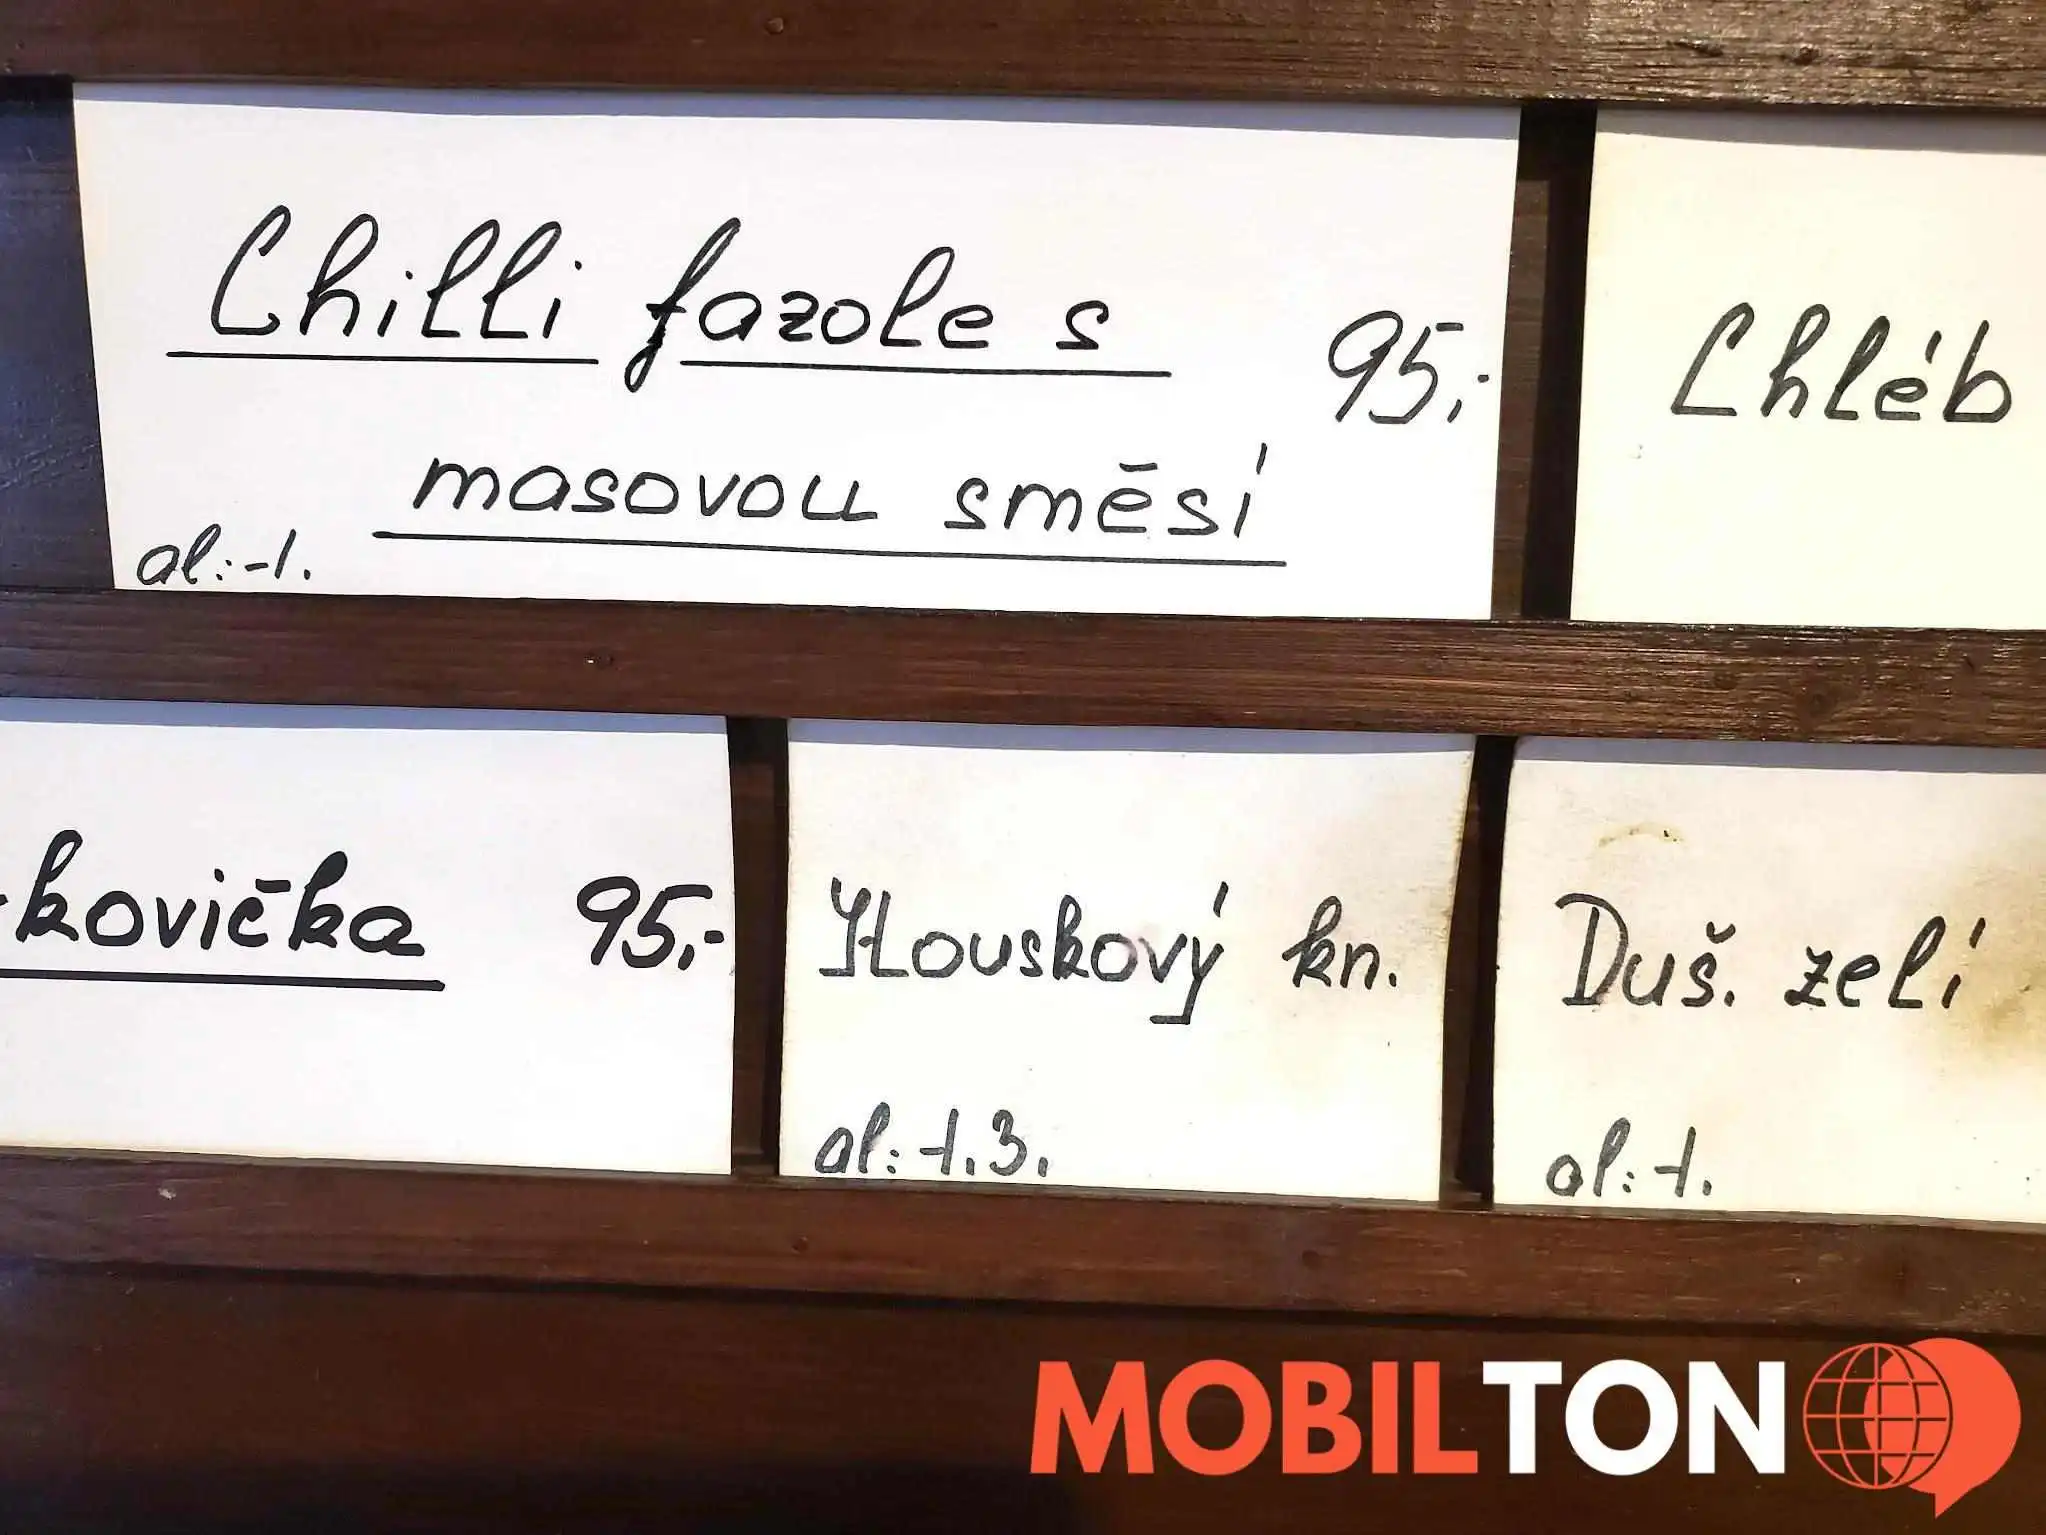 Chilli fazole s 95,-
masovou směsí
al.:-1.
Chléb
kovička 95,-
Houskový kn.
al.:-1.3.
Duš. zelí
al.:-1.
MOBILTON